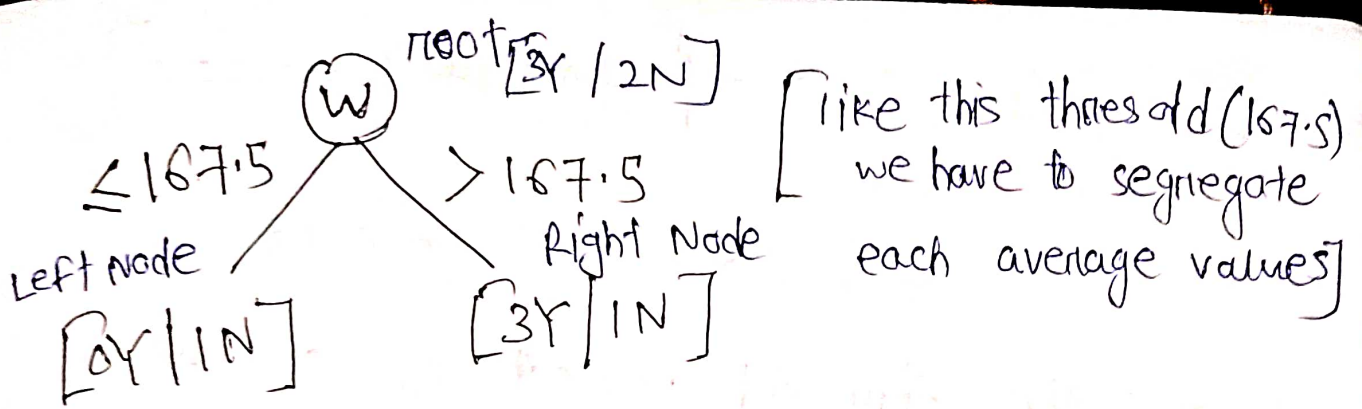 root [3Y / 2N]
W
≤167.5
>167.5
Left Node
Right Node
[0Y|1N]
[3Y|1N]
[like this thresold (167.5)
we have to segregate
each average values]